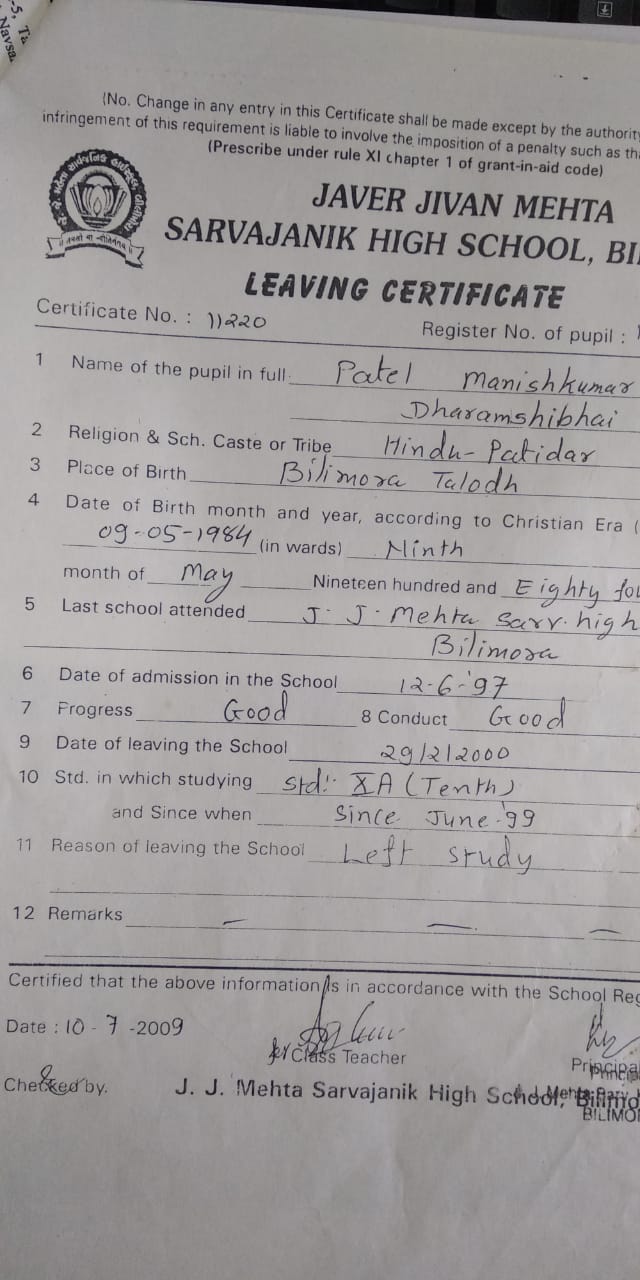 -5, Ta
Navsa
(No. Change in any entry in this Certificate shall be made except by the authority
infringement of this requirement is liable to involve the imposition of a penalty such as th
(Prescribe under rule XI chapter 1 of grant-in-aid code)
JAVER JIVAN MEHTA
SARVAJANIK HIGH SCHOOL, BI
LEAVING CERTIFICATE
Certificate No. : 11220
Register No. of pupil :
1 Name of the pupil in full Patel Manishkumar
Dharamshibhai
2 Religion & Sch. Caste or Tribe Hindu-Patidar
3 Place of Birth Bilimora Talodh
4 Date of Birth month and year, according to Christian Era (
09-05-1984 (in wards) Ninth
month of May Nineteen hundred and Eighty fou
5 Last school attended J. J. Mehta Sarv. high
Bilimora
6 Date of admission in the School 12-6-'97
7 Progress Good 8 Conduct Good
9 Date of leaving the School 29/2/2000
10 Std. in which studying Std:- XA (Tenth)
and Since when Since June-'99
11 Reason of leaving the School Left study
12 Remarks — — —
Certified that the above information is in accordance with the School Reg
Date : 10 - 7 -2009
for Class Teacher
Principal
Checked by. J. J. Mehta Sarvajanik High School, Bilimo
BILIMO